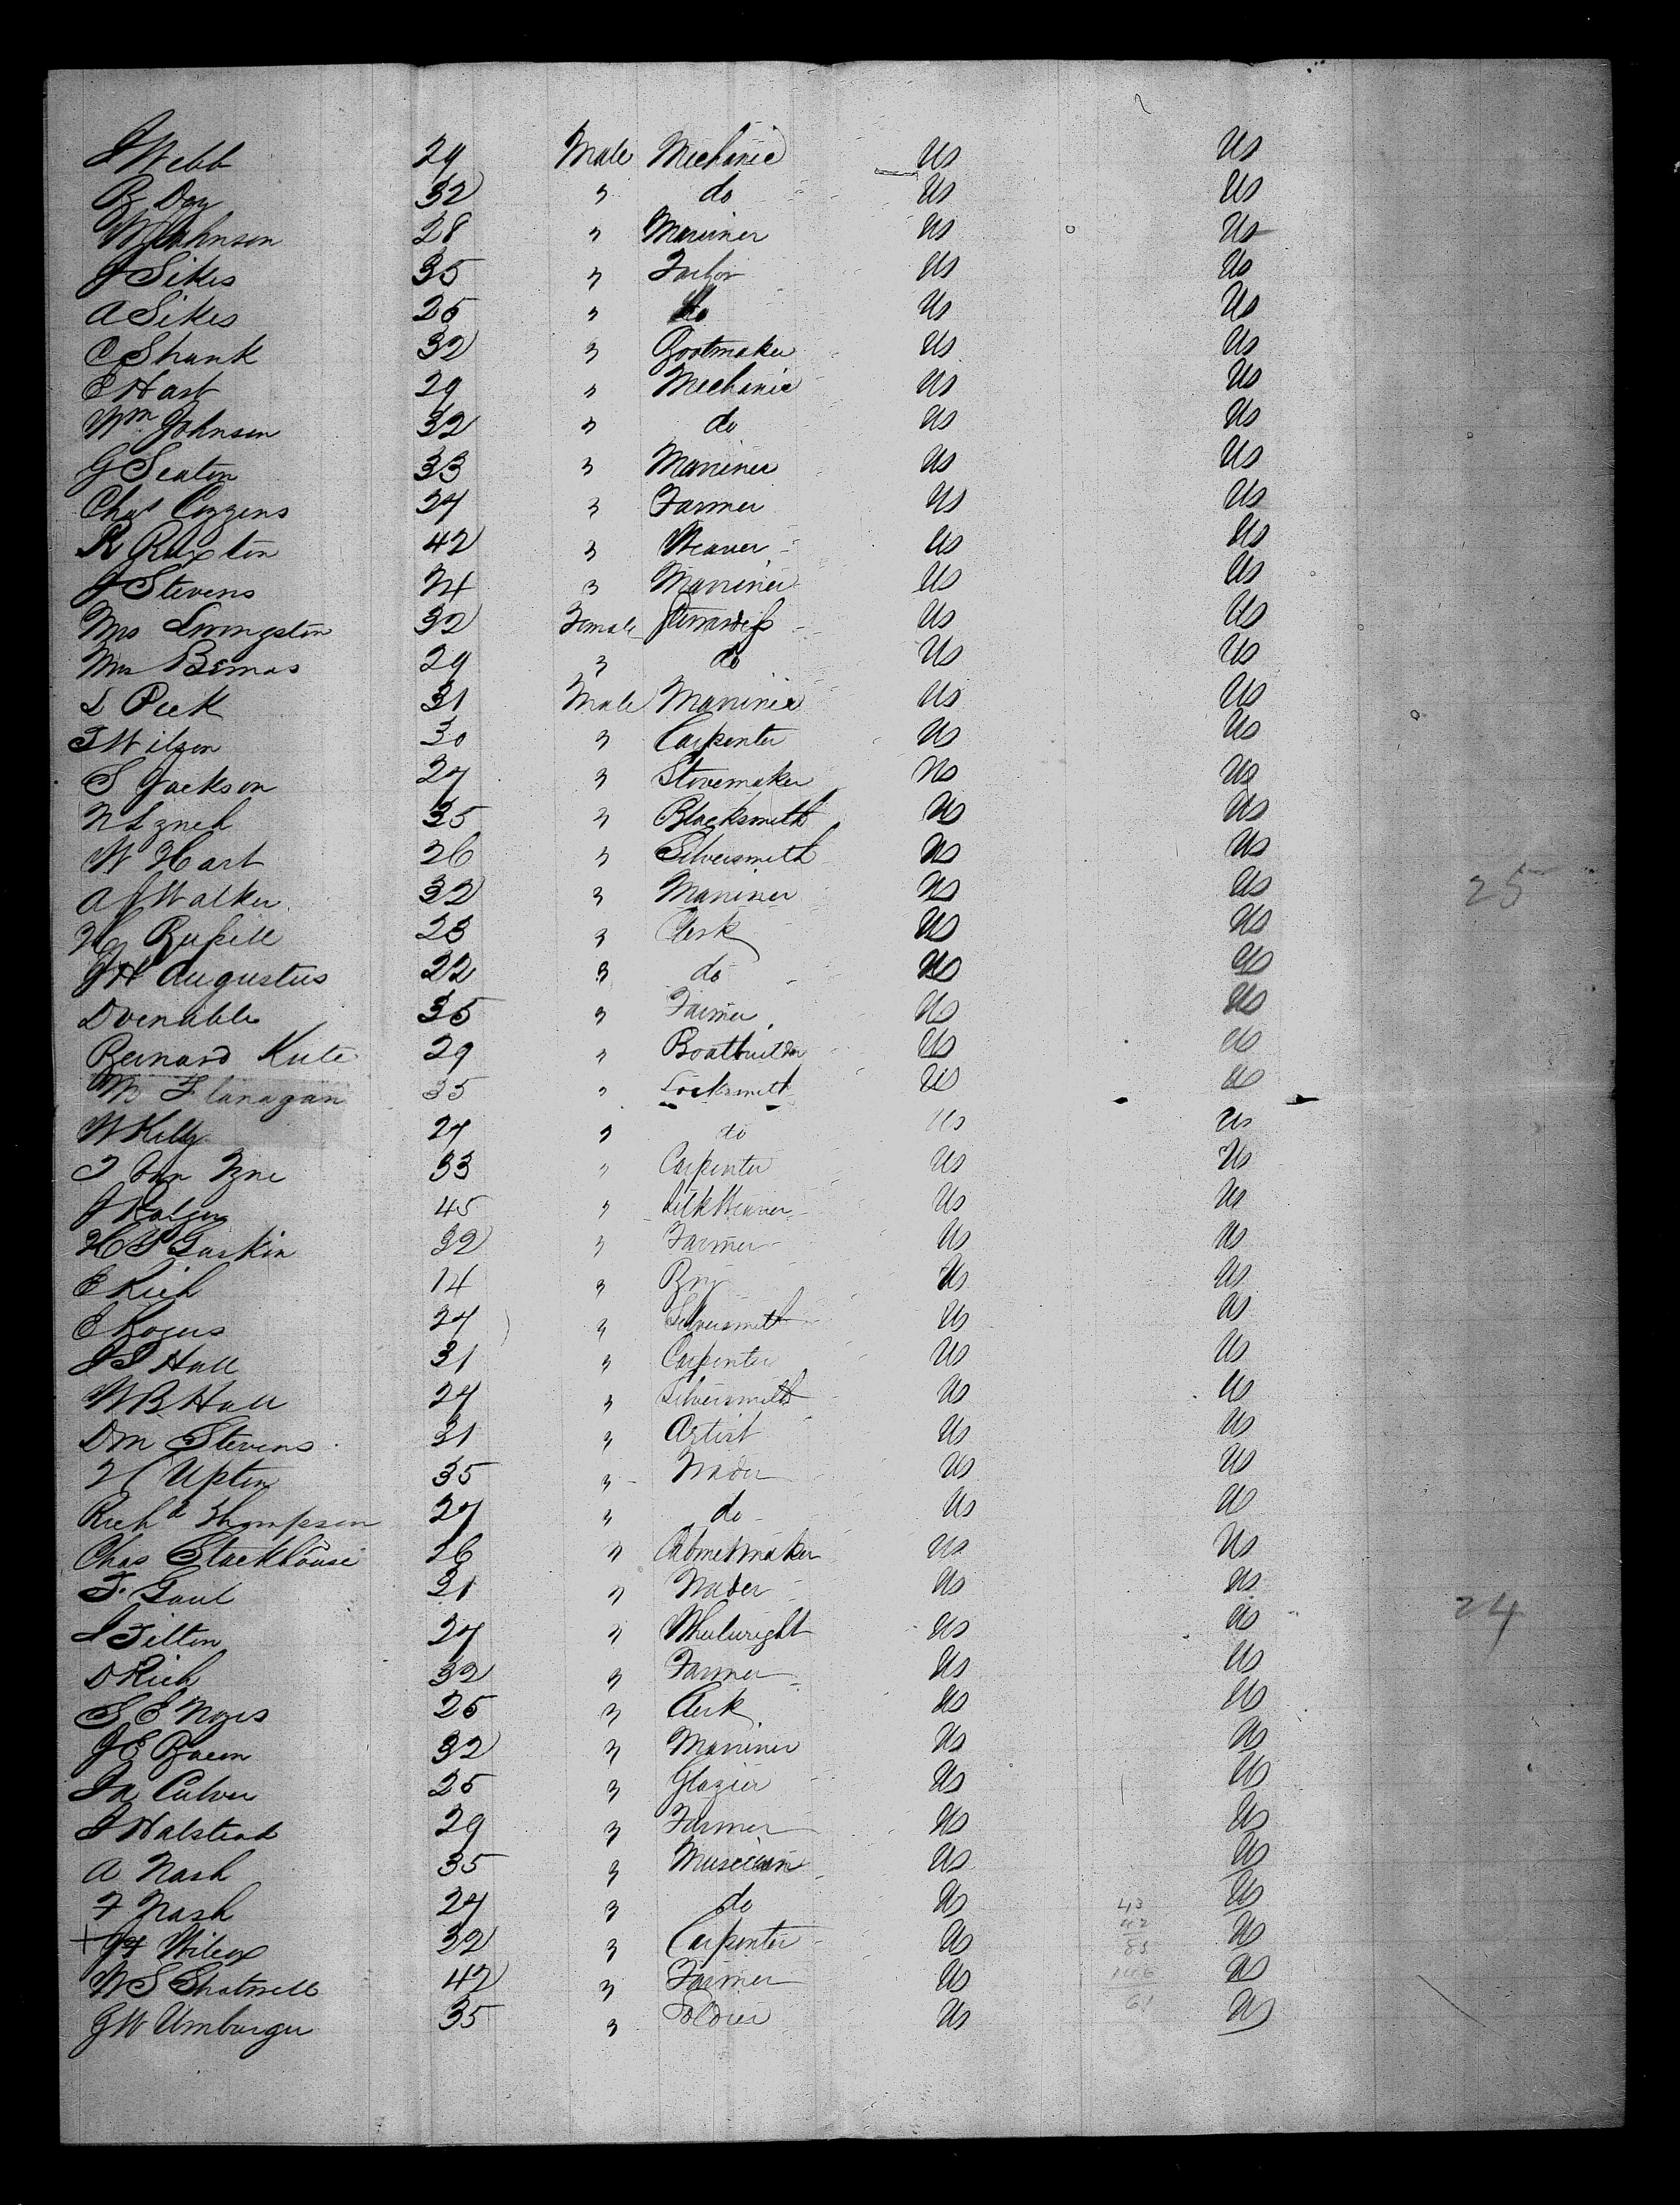 J Webb 29 Male Mechanic Us Us
B Day 32 " do Us Us
W Johnson 28 " Mariner Us Us
J Sikes 35 " Us Us
A Sikes 25 " do Us Us
C Shunk 32 " Bootmaker Us Us
E Hart 29 " Mechanic Us Us
Wm Johnson 32 " do Us Us
G Seaton 33 " Mariner Us Us
Chas Cozzens 27 " Farmer Us Us
R Ruxton 42 " Weaver Us Us
J Stevens 24 " Mariner Us Us
Mrs Livingston 32 Female Stewardess Us Us
Mrs Bemas 29 " do Us Us
L Peek 31 Male Mariner Us Us
T Wilson 30 " Carpenter Us Us
S Jackson 27 " Stovemaker Us Us
N Lynch 35 " Blacksmith Us Us
W Hart 26 " Silversmith Us Us
A J Walker 32 " Mariner Us Us 25
Hy 23 " Clerk Us Us
J H Augustus 22 " do Us Us
D Venable 35 " Farmer Us Us
Bernard Kute 29 " Boatbuilder Us Us
M Flanagan 35 " Locksmith Us Us
W Kelly 27 " do Us Us
T Van Zyne 33 " Carpenter Us Us
J 45 " Silk Weaver Us Us
H S Gaskin 32 " Farmer Us Us
E Rich 14 " Boy Us Us
E Rogers 27 " Silversmith Us Us
J S Hall 31 " Carpenter Us Us
W B Hall 27 " Silversmith Us Us
D M Stevens 31 " Artist Us Us
H Upton 35 " Trader Us Us
Richd Thompson 27 " do Us Us
Chas Stackhouse 26 " Cabinetmaker Us Us
F. Gaul 31 " Trader Us Us
J Tilton 27 " Wheelwright Us Us 24
D Rich 32 " Farmer Us Us
S E Noyes 25 " Clerk Us Us
J E Bacon 32 " Mariner Us Us
Culver 25 " Glazier Us Us
J Halstead 29 " Farmer Us Us
A Nash 35 " Musician Us Us
F Nash 27 " do Us 43 Us
+ J F Wilcox 32 " Carpenter Us 42 Us
W S Shotwell 42 " Farmer Us Us
J W Umbarger 35 " Soldier Us 61 Us